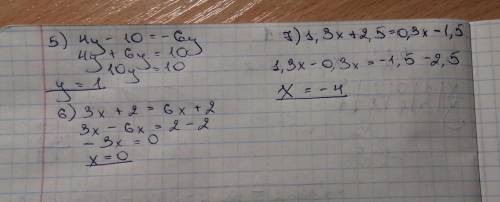 5) 4y - 10 = -6y
4y + 6y = 10
10y = 10
y = 1
6) 3x + 2 = 6x + 2
3x - 6x = 2 - 2
- 3x = 0
x = 0
7) 1,3x + 2,5 = 0,3x - 1,5
1,3x - 0,3x = -1,5 - 2,5
x = -4